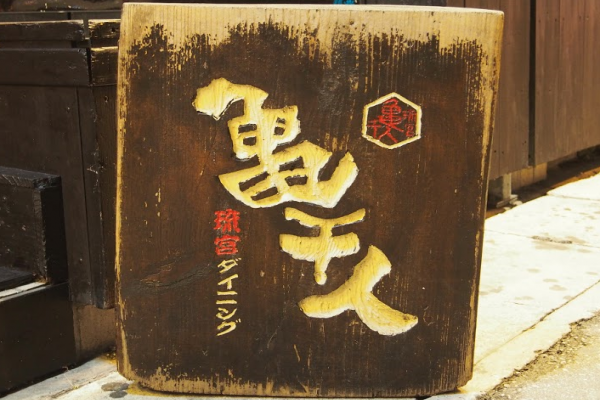 亀千人
琉宮ダイニング
亀千人